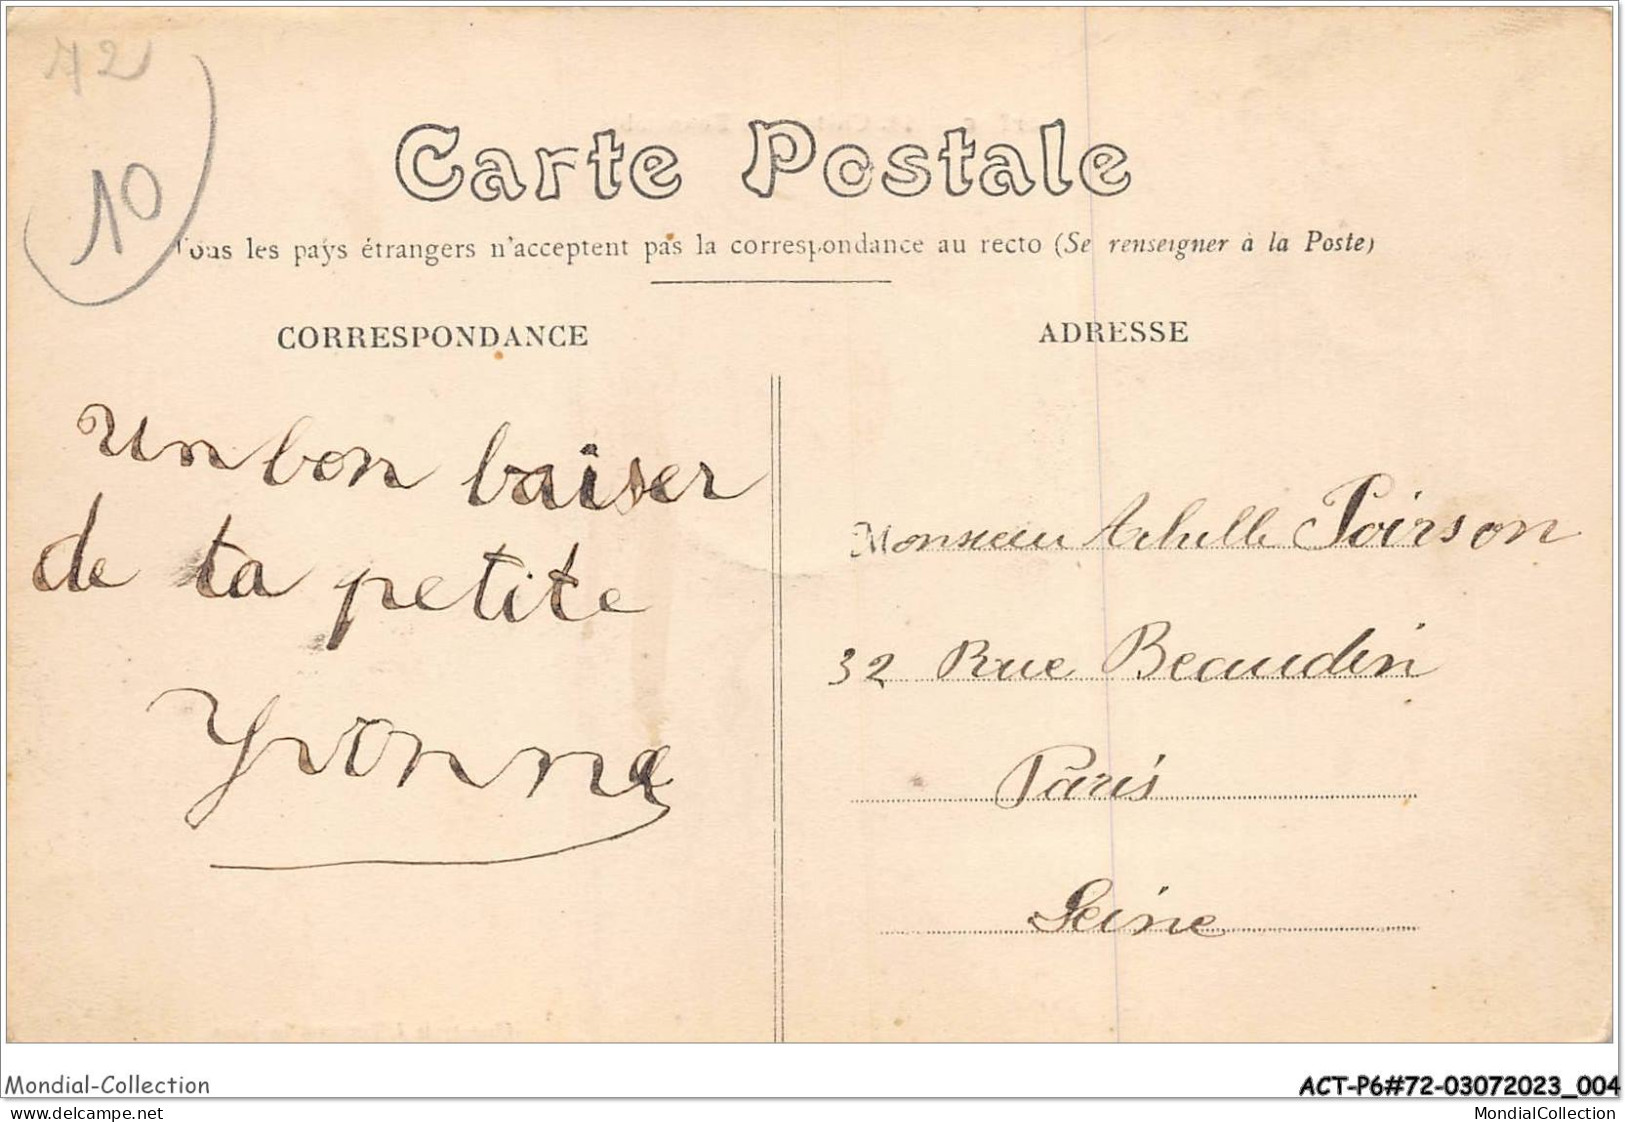 72
10
Carte Postale
Tous les pays étrangers n'acceptent pas la correspondance au recto (Se renseigner à la Poste)
CORRESPONDANCE
Un bon baiser
de ta petite
Yvonne
ADRESSE
Monsieur Achille Poirson
32 Rue Beaudin
Paris
Seine
Mondial-Collection
ACT-P6#72-03072023_004
www.delcampe.net
MondialCollection